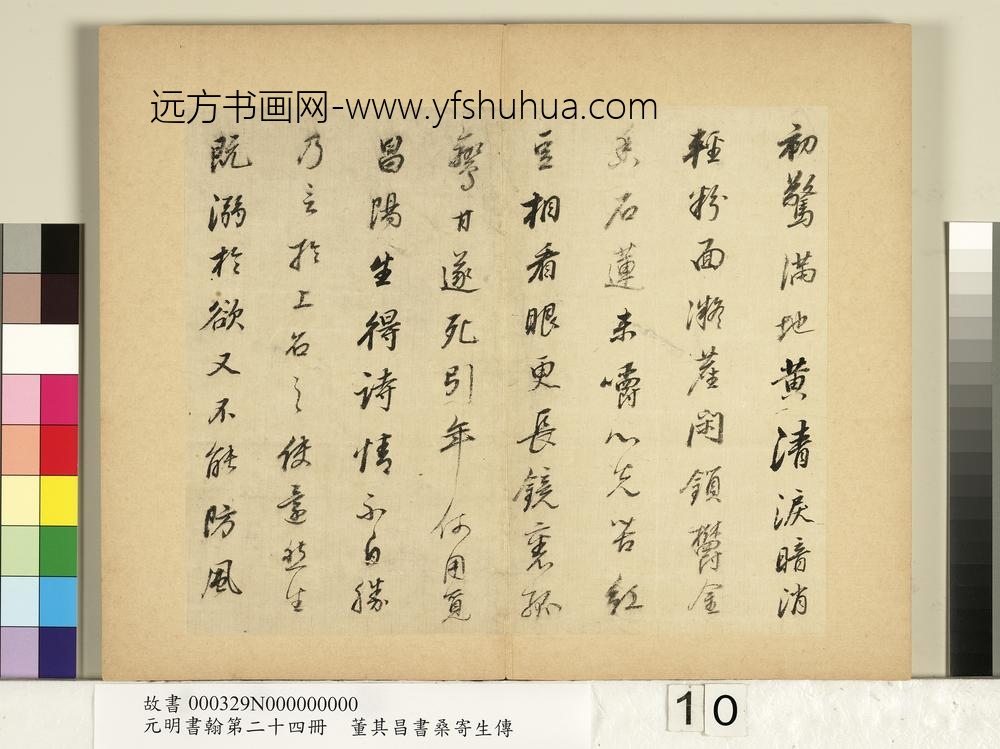 远方书画网-www.yfshuhua.com
初驚滿地黃清淚暗消
輕粉面凝塵閑鎖鬱金
香石蓮未嚼心先苦紅
豆相看眼更長鏡裏孤
鸞甘遂死引年何用覓
昌陽生得詩情不自勝
乃言於上召之使還然生
既溺於欲又不能防風
故書 000329N000000000
元明書翰第二十四冊 董其昌書桑寄生傳
10